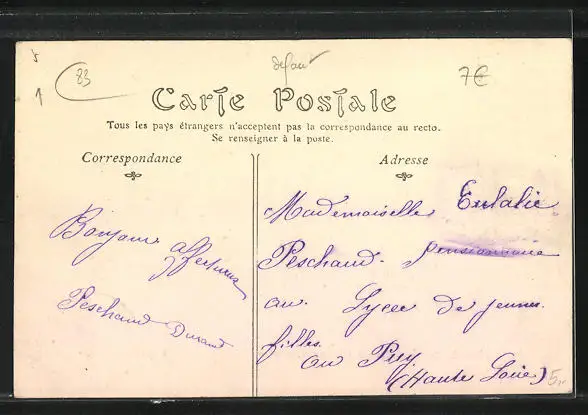 83
defaut
7€
Carte Postale
Tous les pays étrangers n'acceptent pas la correspondance au recto.
Se renseigner à la poste.
Correspondance
Bonjour affectueux
Peschaud Durand
Adresse
Mademoiselle Eulalie
Peschaud. pensionnaire
au. Lycée de jeunes.
filles.
au Puy
(Haute Loire)